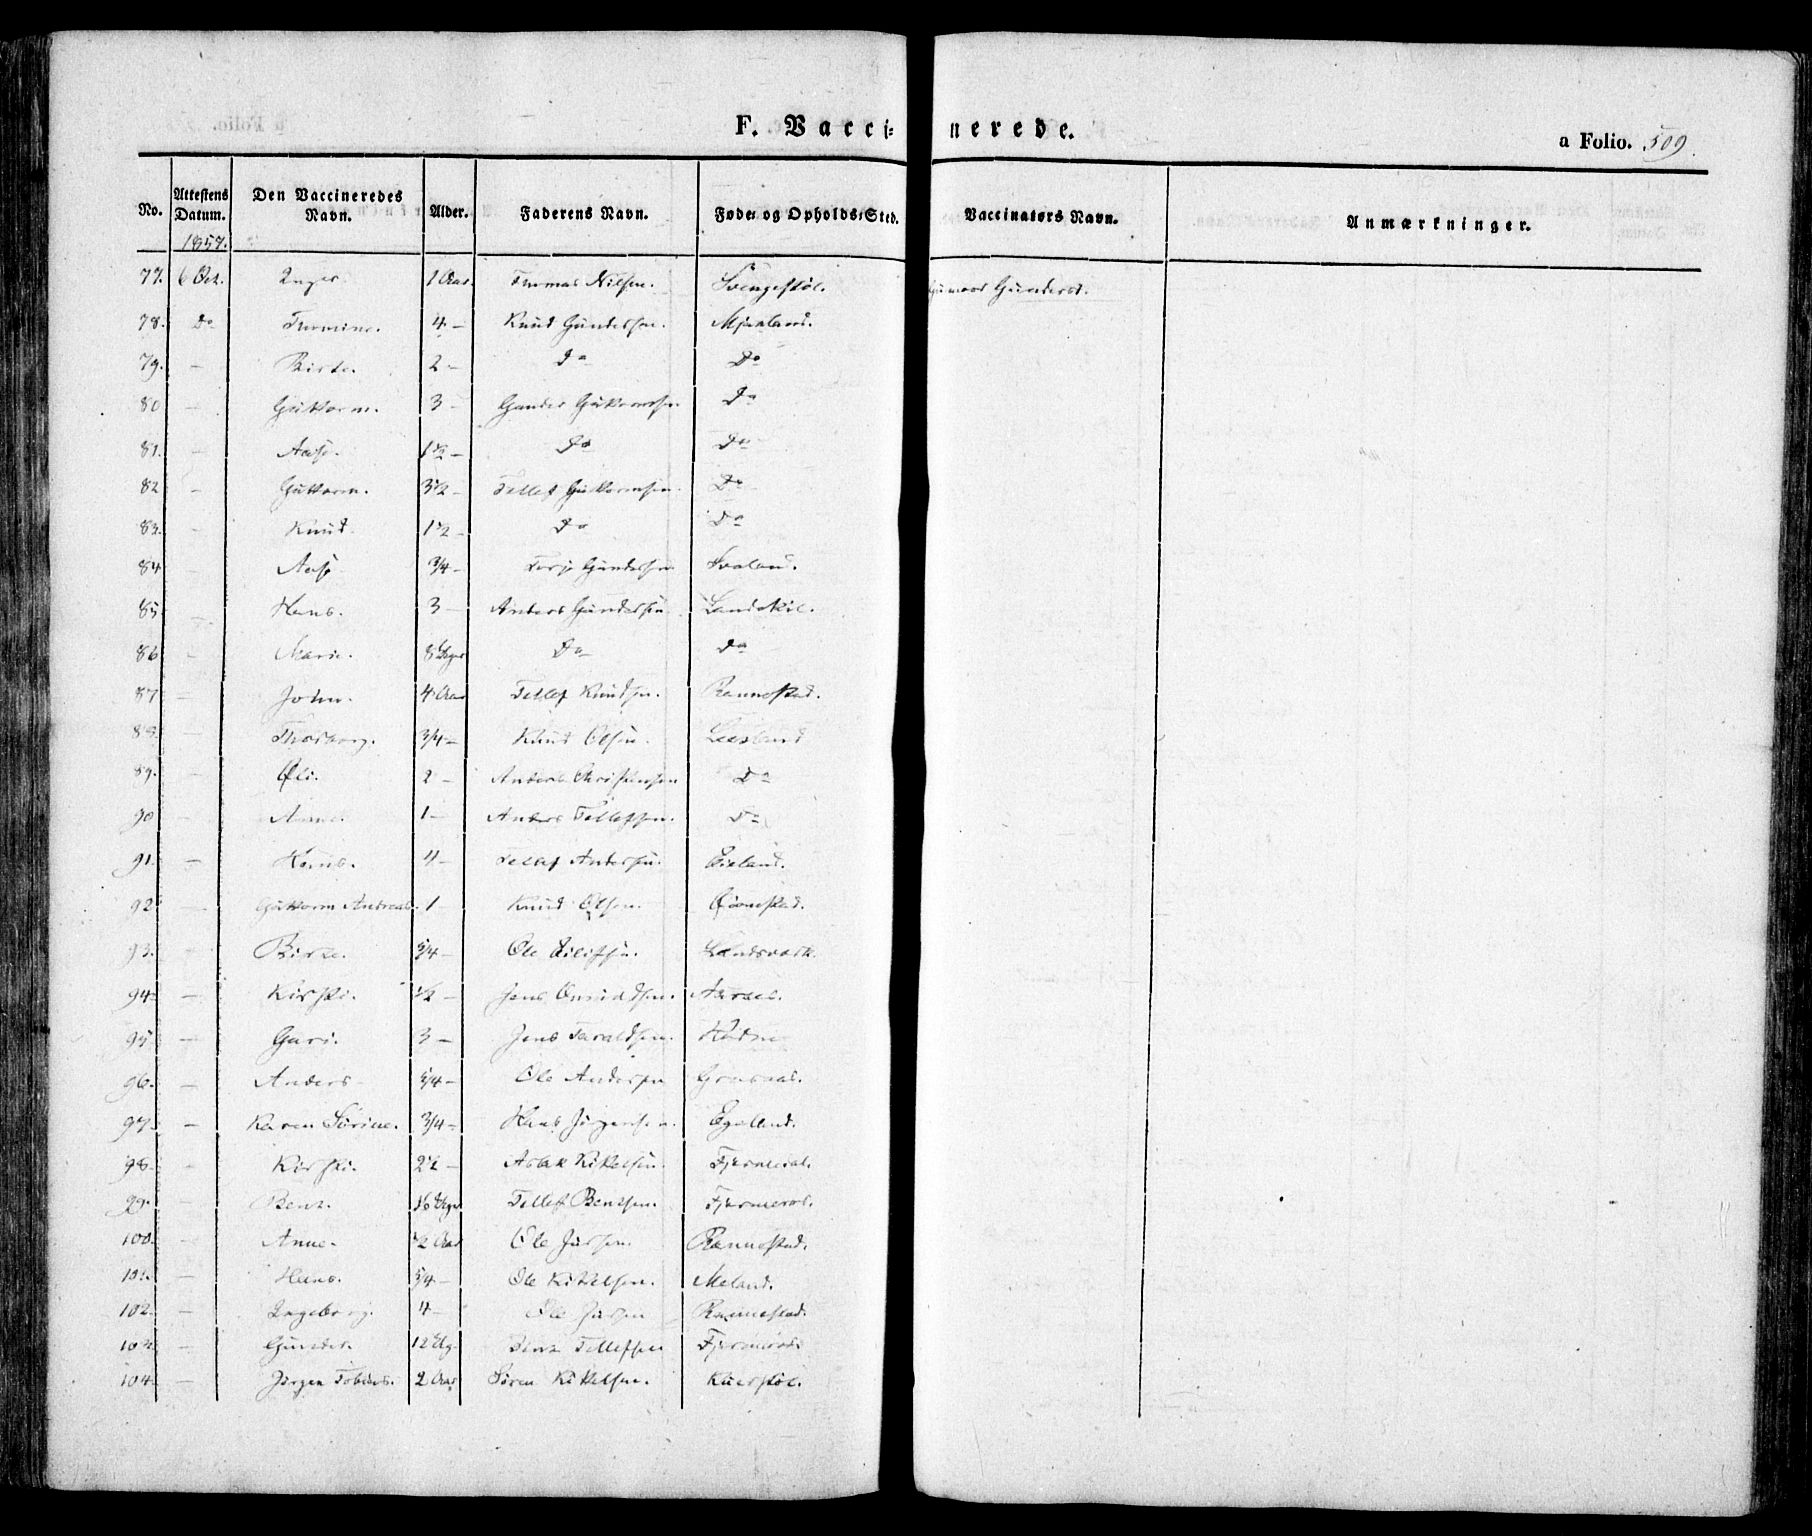 F. Vaccinerede.
a Folio. 509.
No. Attestens Datum. Den Vaccineredes Navn. Alder. Faderens Navn. Føde- og Opholds-Sted. Vaccinatørs Navn. Anmærkninger.
1857.
77. 6 Oct. Inger. 1 Aar. Thomas Nilsen. Svengestøl. Gunderd.
78. Do 4 - Knud Gundersen. Mjaaland.
79. - Birte. 2 - Do Do
80 - Guttorm. 3 - Gunder Guttormsen Do
81. - Aase. 1 1/2 - Do Do
82 - Guttorm. 3 1/2 - Tellef Guttormsen. Do
83. - Knud. 1 1/2 - Do Do
84 - Aase 3/4 - Terje Gundersen Svaland.
85 - Hans. 3 - Anders Gundersen
86 - Marie. 8 Uger Do Do
87 - John. 4 Aar Tellef Knudsen. Rannestad.
88. - Thorborg. 3/4 - Knud Olsen.
89. - 2 - Anders Christensen Do
90 - Anne. 1 - Anders Tellefsen. Do
91. - 4 - Tellef Andersen. Eieland.
92 - Guttorm Andreas. 1 Knud Olsen.
93. - 5/4 - Ole Landsverk.
94. - Kirsti. 1/2 - Jens Omundsen.
95. - Guri. 3 - Jens Taraldsen.
96. - Anders 5/4 - Ole Andersen
97. - Karen Sørine. 3/4 - Hans Jørgensen. Egeland.
98. - Kirsti. 2 1/2 - Aslak Kittelsen. Fjermedal.
99. - Bent. 16 Uger Tellef Bentsen. Fjermeros.
100. - Anne. 1/2 Aar Ole Rannestad.
101. - Hans. 5/4 - Ole Kittelsen. Meland.
102. - Ingeborg. 4 - Ole Rannestad.
103. - Gunder. 12 Ug. Bent Tellefsen Fjermeros
104. - Jørgen Tobias. 2 Aar Søren Kittelsen.